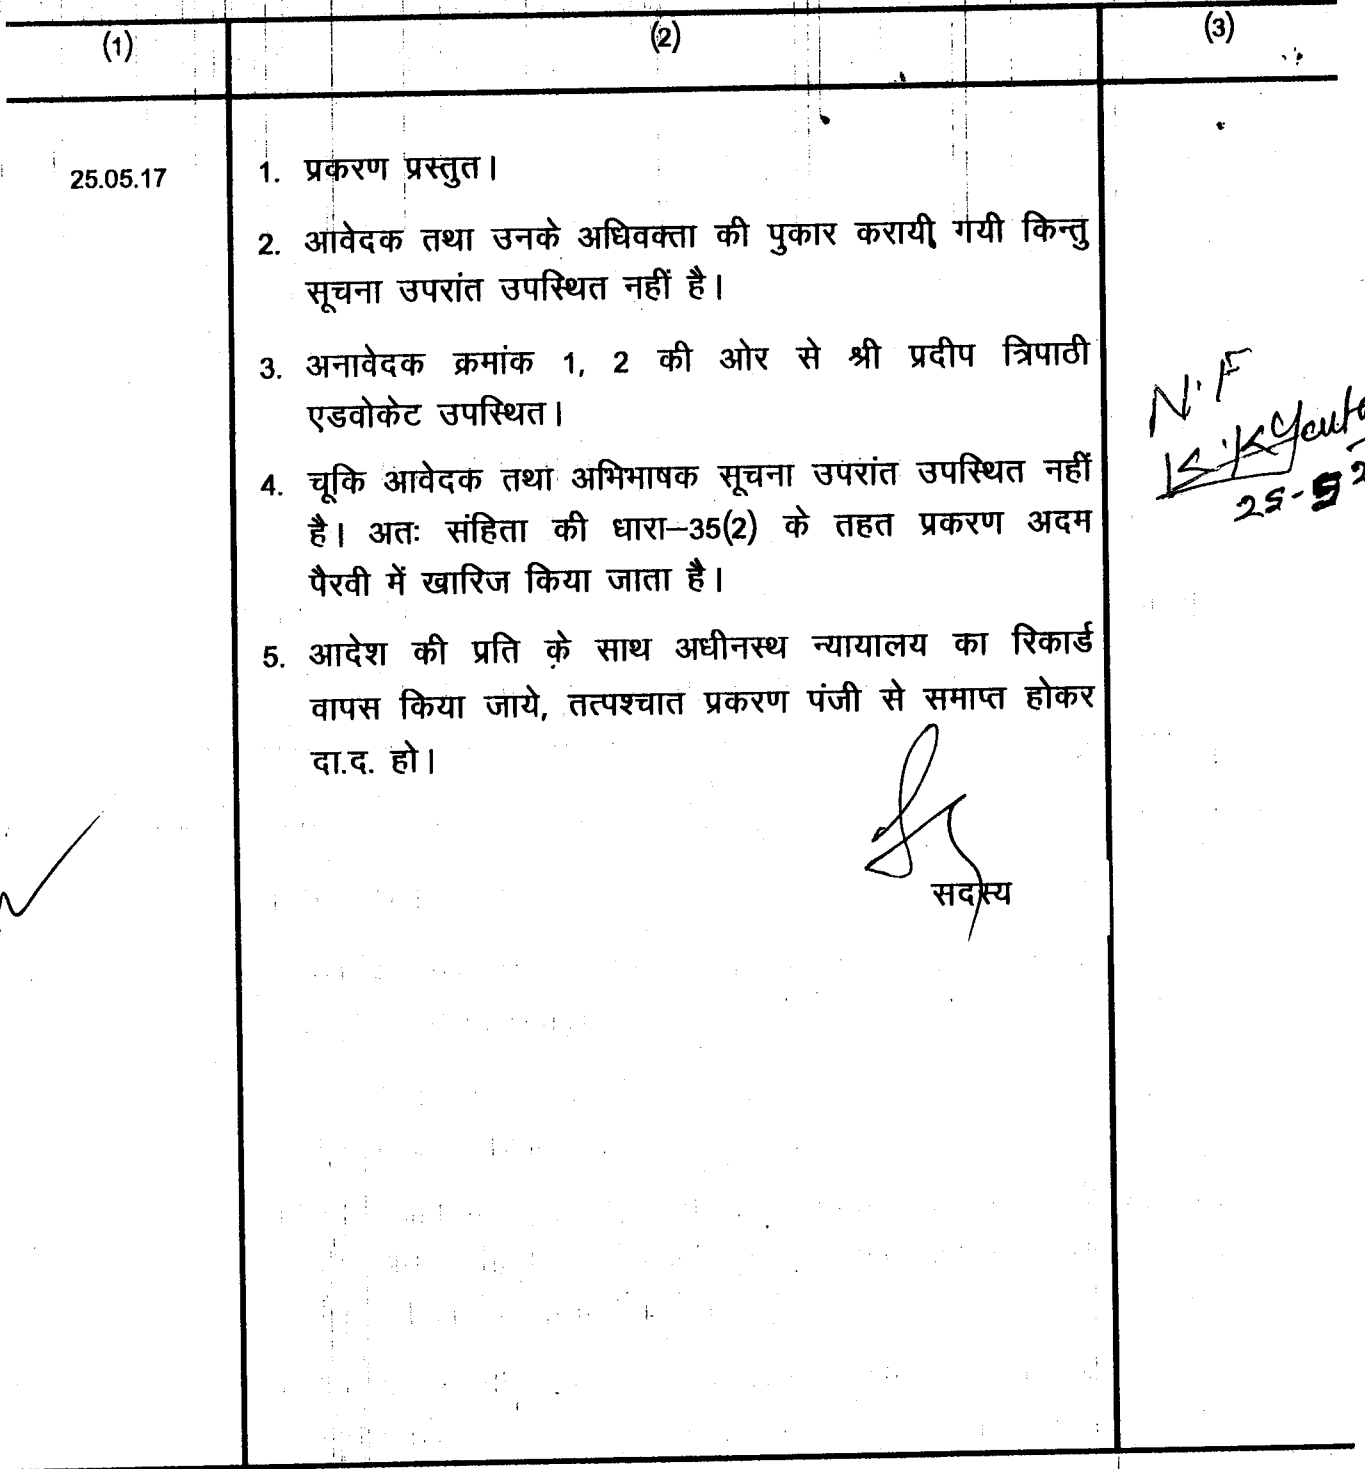 (1) (2) (3)
25.05.17
1. प्रकरण प्रस्तुत।
2. आवेदक तथा उनके अधिवक्ता की पुकार करायी गयी किन्तु
सूचना उपरांत उपस्थित नहीं है।
3. अनावेदक क्रमांक 1, 2 की ओर से श्री प्रदीप त्रिपाठी
एडवोकेट उपस्थित।
4. चूकि आवेदक तथा अभिभाषक सूचना उपरांत उपस्थित नहीं
है। अतः संहिता की धारा–35(2) के तहत प्रकरण अदम
पैरवी में खारिज किया जाता है।
5. आदेश की प्रति के साथ अधीनस्थ न्यायालय का रिकार्ड
वापस किया जाये, तत्पश्चात प्रकरण पंजी से समाप्त होकर
दा.द. हो।
सदस्य
N.F
K.K
25-5